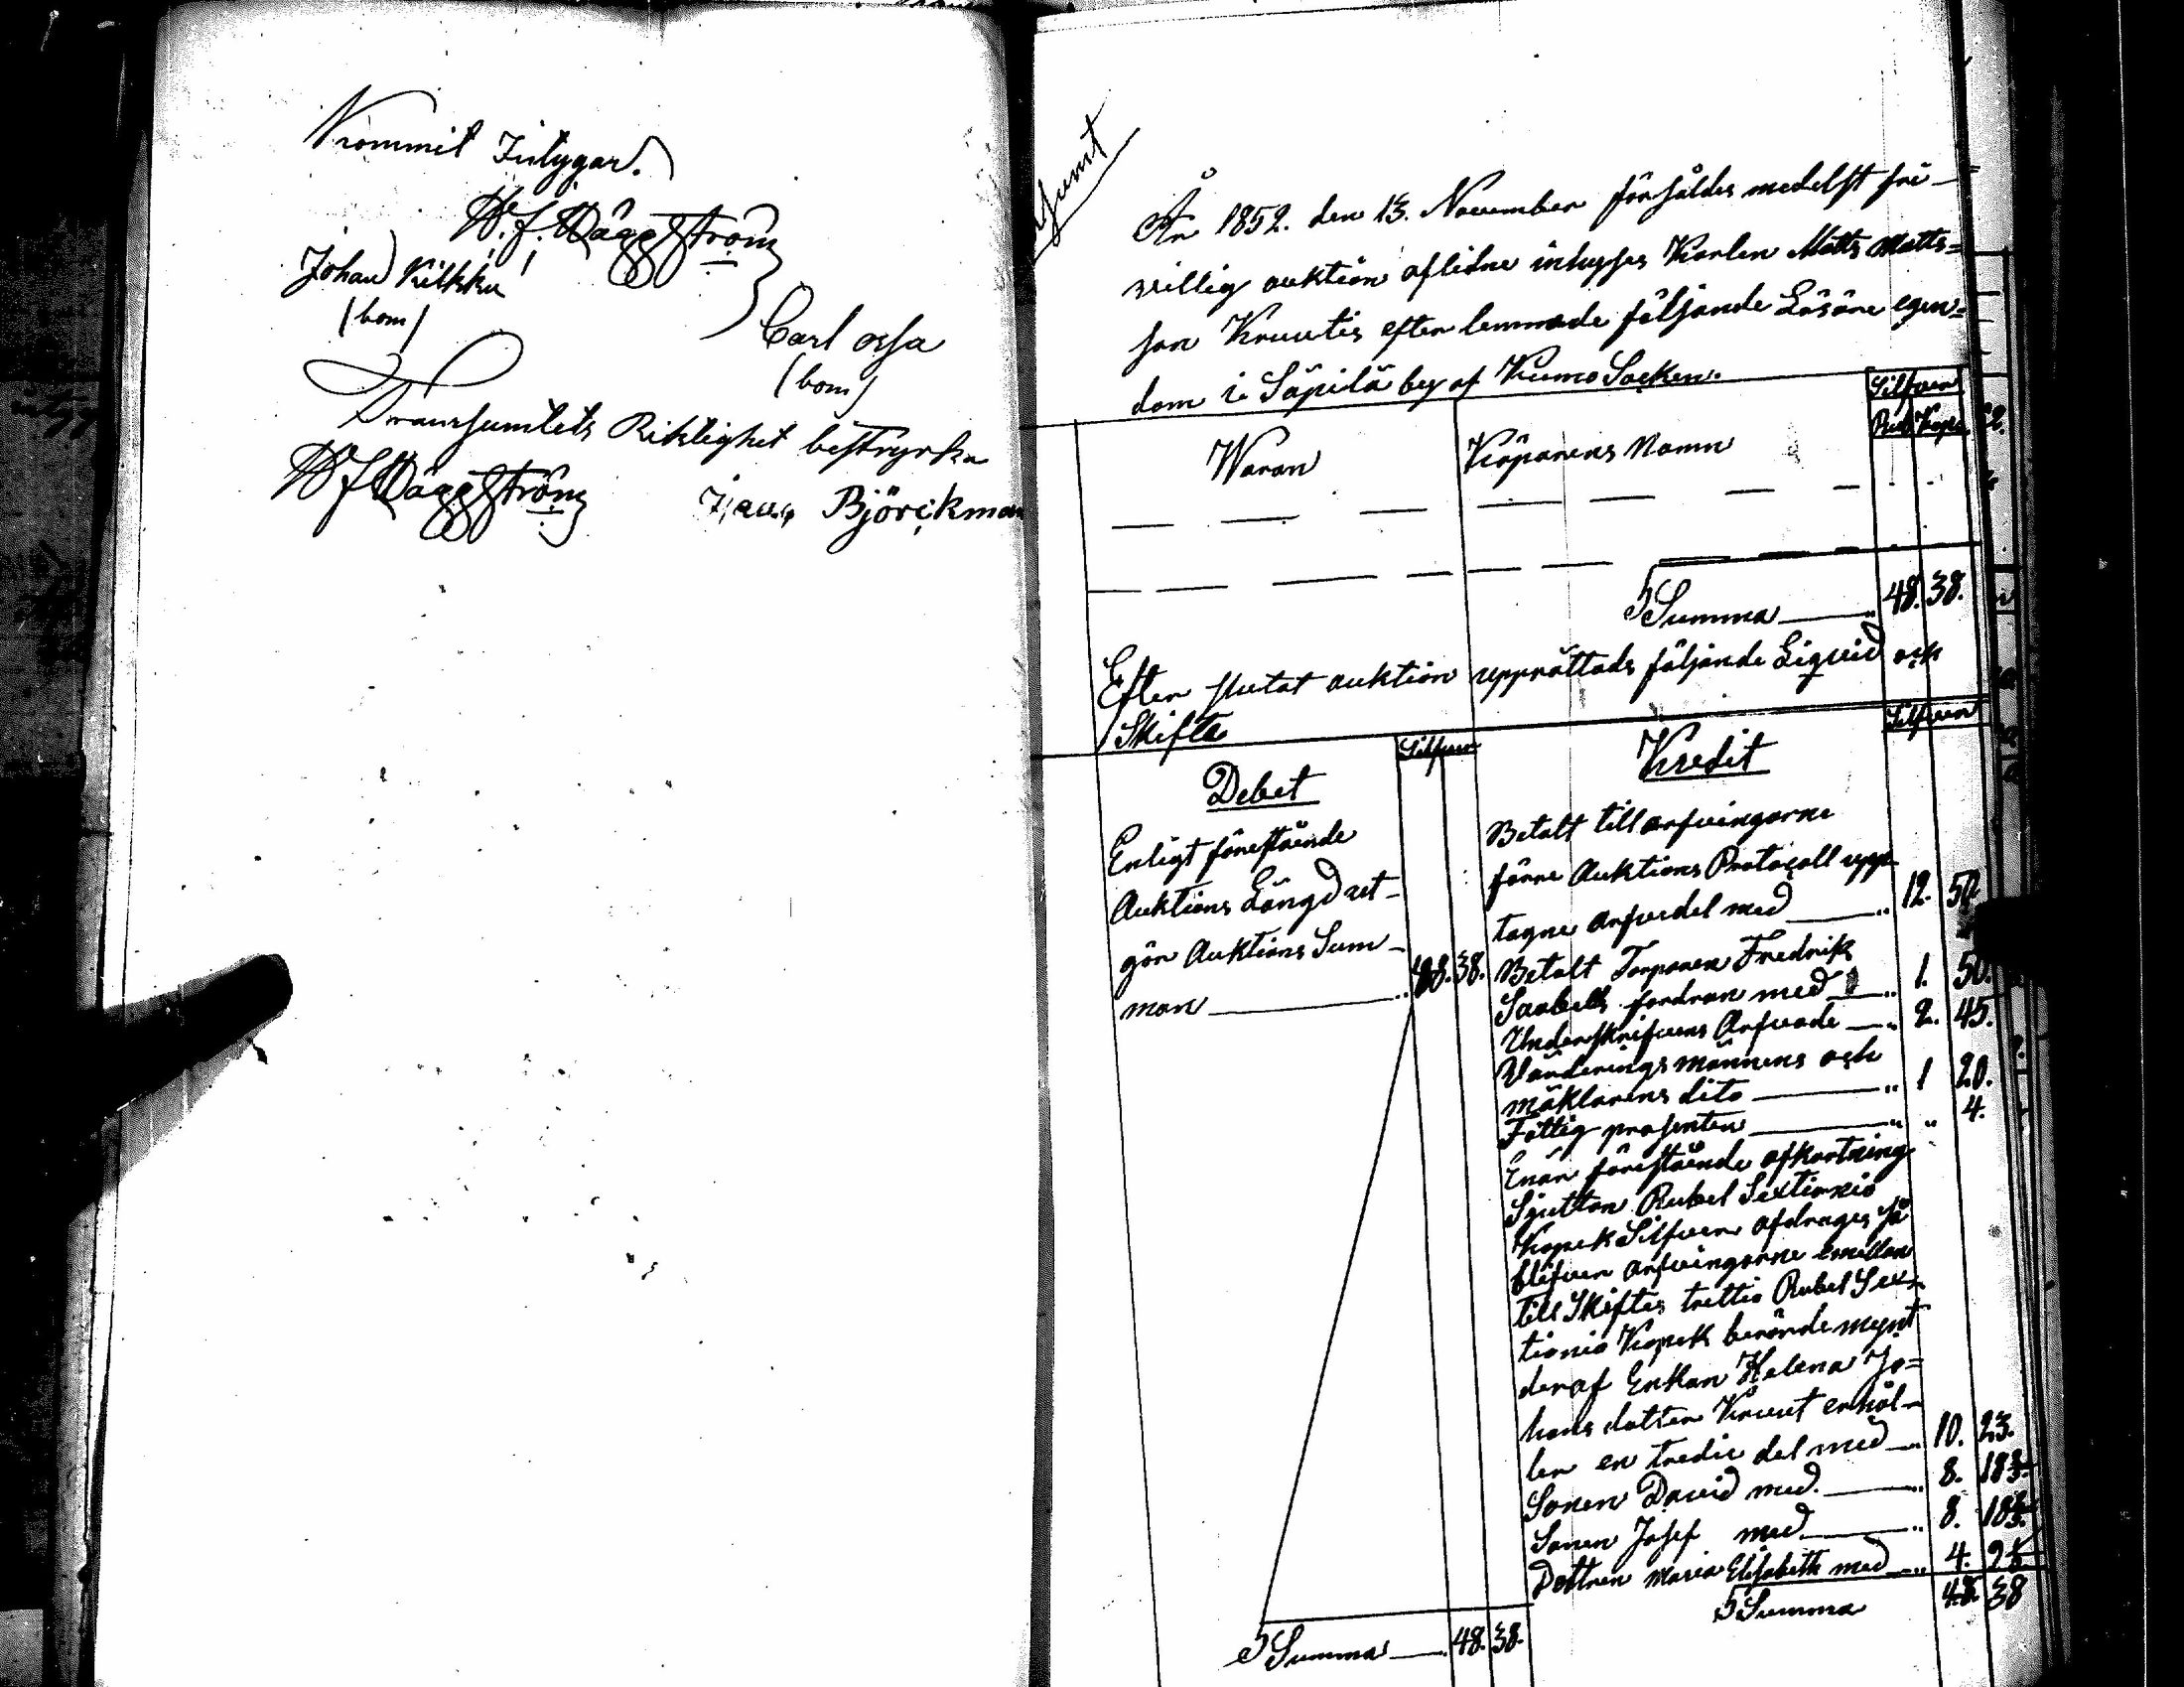 W. f. Häggström
Johan Kilkku
(bom)
Carl ossa
(bom)
Transsumtets Riktighet bestyrka
W f Häggström Björckman
År 1852. den 13. November försåldes medelst fri-
villig auktion aflidne inhyses Karlen Matts Matts=
son Kruutis efterlemnade följande Lösöre egen=
dom i Säpilä by af Kumo Socken.
Silfver
Waran Köparens Namn Rub. Kope.
Summa 48. 38.
Efter slutat auktion upprättades följande Liqvid och
Skifte
Silfver Silfver
Debet
Enligt förestående
Auktions Längd ut-
gör Auktions Sum-
man 48. 38.
Summa 48. 38.
Kredit
Betalt till arfvingarne
förre Auktions Protocoll upp-
tagne arfvedel med 12. 50
Betalt Torparen Fredrik
Saabels fordran med 1. 50.
Underskrifvens Arfvode 2. 45.
Värderingsmännens och
mäklarens dito 1 20.
Fattig prosenten " 4.
Enär förestående afkortning
Sjutton Rubel Sextionio
Kopek Silfver afdrages så
blifver arfvingarne emellan
till Skiftes trettio Rubel Sex-
tionio Kopek berörde mynt
deraf Enkan Helena Jo=
hans dotter Kruut erhål-
ler en tredie del med 10. 23.
Sonen David med 8. 18 2/3.
Sonen Josef med 8. 18 2/3.
Dottren Maria Elisabeth med 4. 9 1/3
Summa 48. 38